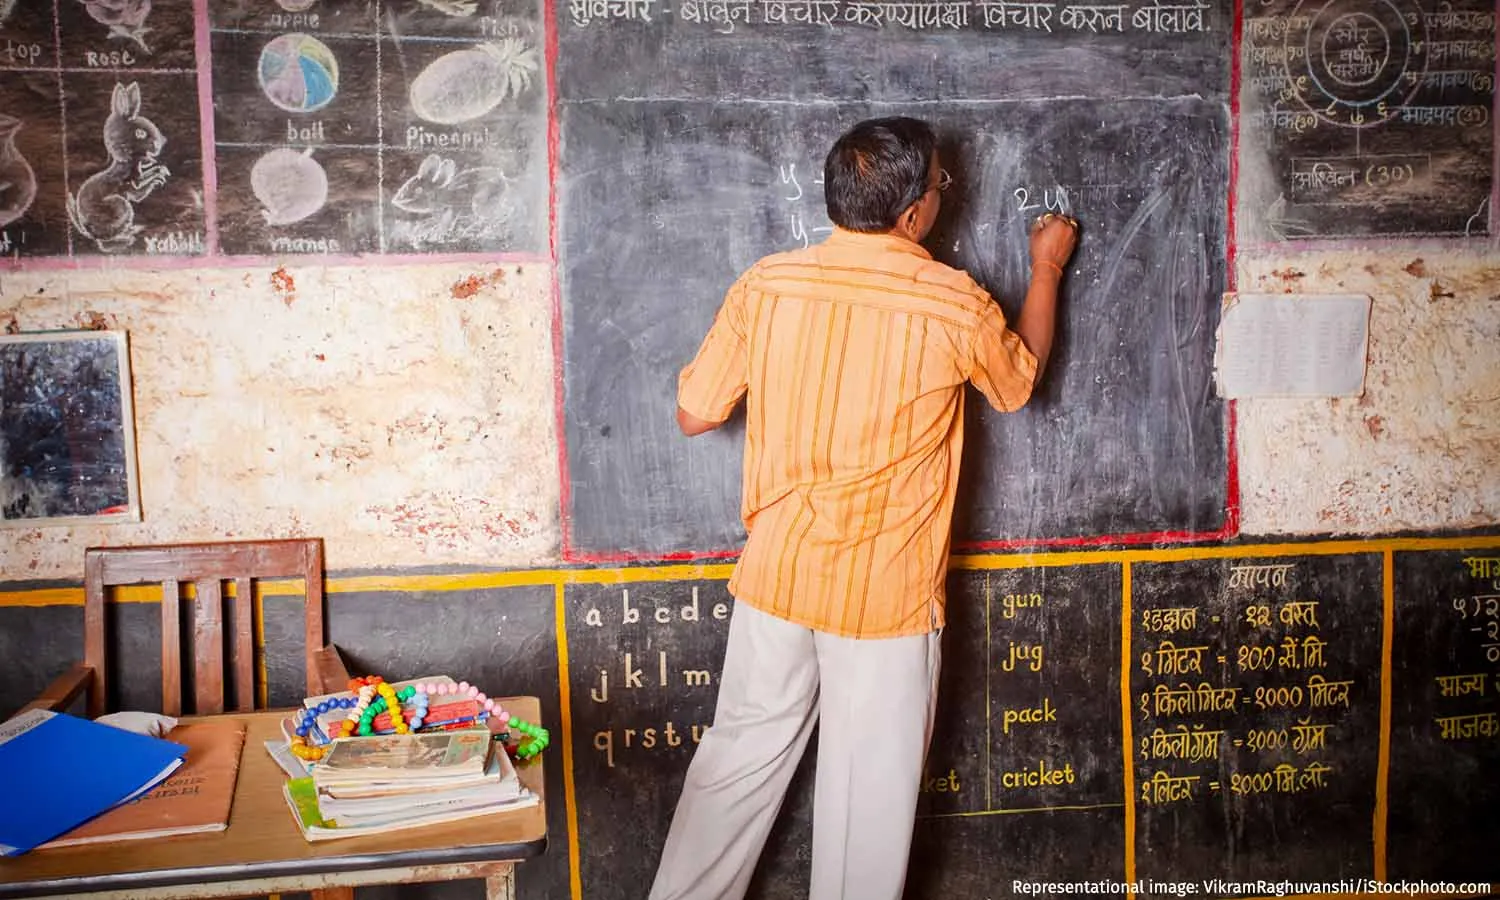 सुविचार - बोलून विचार करण्यापेक्षा विचार करुन बोलावे.
apple
fish
top
rose
ball
Pineapple
rabbit
mango
y -
y -
2 y
सौर
वर्ष
भाद्रपद (३१)
आश्विन (30)
a b c d e
j k l m
q r s t u
gun
jug
pack
cricket
मापन
१ डझन = १२ वस्तू
१ मिटर = १०० सें.मि.
१ किलोमिटर = १००० मिटर
१ किलोग्रॅम = १००० ग्रॅम
१ लिटर = १००० मि.ली.
भाज्य
भाजक
Representational image: VikramRaghuvanshi/iStockphoto.com